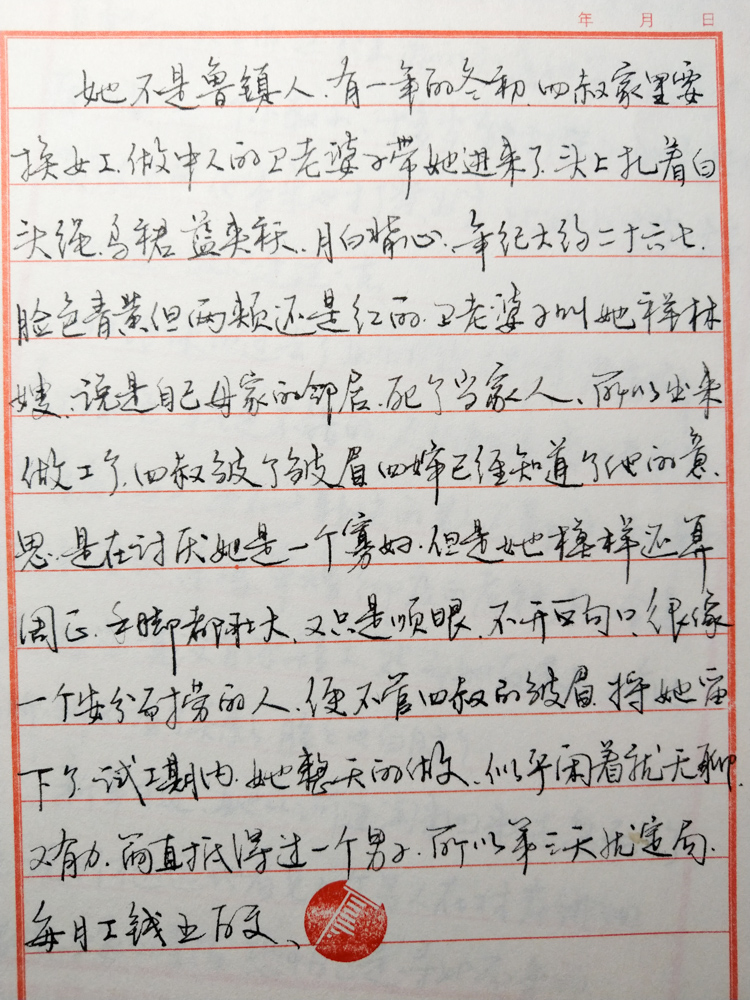 年 月 日
她不是鲁镇人.有一年的冬初.四叔家里要
换女工.做中人的卫老婆子带她进来了.头上扎着白
头绳.乌裙.蓝夹袄.月白背心.年纪大约二十六七.
脸色青黄但两颊还是红的.卫老婆子叫她祥林
嫂.说是自己母家的邻居.死了当家人、所以出来
做工了.四叔皱了皱眉四婶已经知道了他的意
思.是在讨厌她是一个寡妇.但是她模样还算
周正.手脚都壮大.又只是顺眼.不开口.很像
一个安分耐劳的人.便不管四叔的皱眉.将她留
下了.试工期内.她整天的做.似乎闲着就无聊.
又有力.简直抵得过一个男子.所以第三天就定局.
每月工钱五百文、